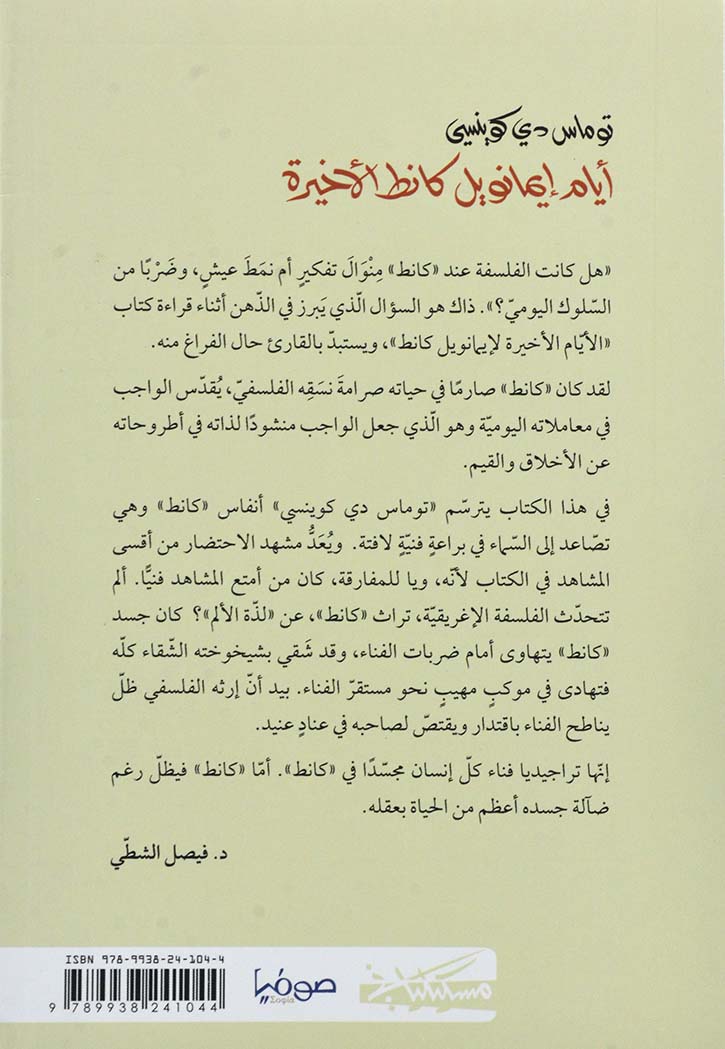 توماس دي كوينسي
أيام إيمانويل كانط الأخيرة
«هل كانت الفلسفة عند «كانط» مِنْوَالَ تفكيرٍ أم نمَطَ عيشٍ، وضَرْبًا من
السّلوك اليوميّ؟». ذاك هو السؤال الّذي يَبرز في الذّهن أثناء قراءة كتاب
«الأيّام الأخيرة لإيمانويل كانط»، ويستبدّ بالقارئ حال الفراغ منه.
لقد كان «كانط» صارمًا في حياته صرامةَ نسَقِه الفلسفيّ، يُقدّس الواجب
في معاملاته اليوميّة وهو الّذي جعل الواجب منشودًا لذاته في أطروحاته
عن الأخلاق والقيم.
في هذا الكتاب يترسّم «توماس دي كوينسي» أنفاس «كانط» وهي
تصّاعد إلى السّماء في براعةٍ فنيّةٍ لافتة. ويُعَدُّ مشهد الاحتضار من أقسى
المشاهد في الكتاب لأنّه، ويا للمفارقة، كان من أمتع المشاهد فنيًّا. ألم
تتحدّث الفلسفة الإغريقيّة، تراث «كانط»، عن «لذّة الألم»؟ كان جسد
«كانط» يتهاوى أمام ضربات الفناء، وقد شَقي بشيخوخته الشّقاء كلّه
فتهادى في موكبٍ مهيبٍ نحو مستقرّ الفناء. بيد أنّ إرثه الفلسفي ظلّ
يناطح الفناء باقتدار ويقتصّ لصاحبه في عنادٍ عنيد.
إنّها تراجيديا فناء كلّ إنسان مجسّدًا في «كانط». أمّا «كانط» فيظلّ رغم
ضآلة جسده أعظم من الحياة بعقله.
د. فيصل الشطّي
ISBN 978-9938-24-104-4
9 789938 241044
صوفيا
Sofia
مسكيلياني